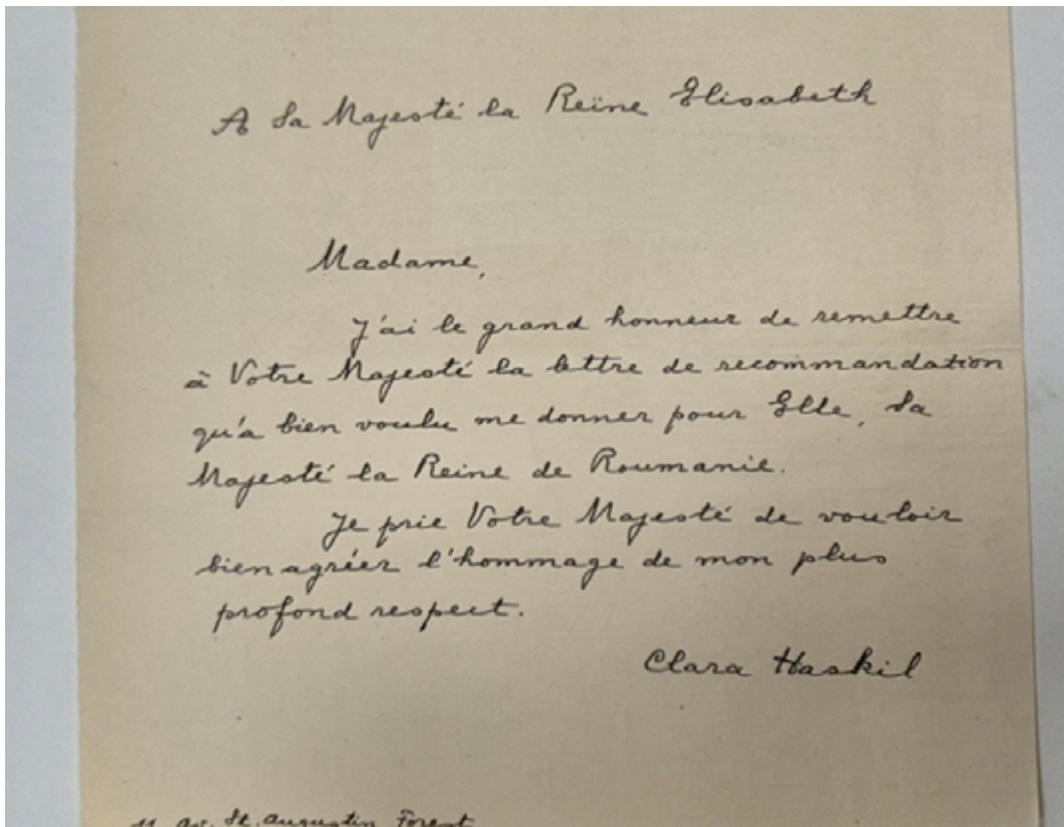 A Sa Majesté la Reïne Elisabeth
Madame,
J'ai le grand honneur de remettre
à Votre Majesté la lettre de recommandation
qu'a bien voulu me donner pour Elle, Sa
Majesté la Reine de Roumanie.
Je prie Votre Majesté de vouloir
bien agréer l'hommage de mon plus
profond respect.
Clara Haskil
11 av. St. Augustin Forest